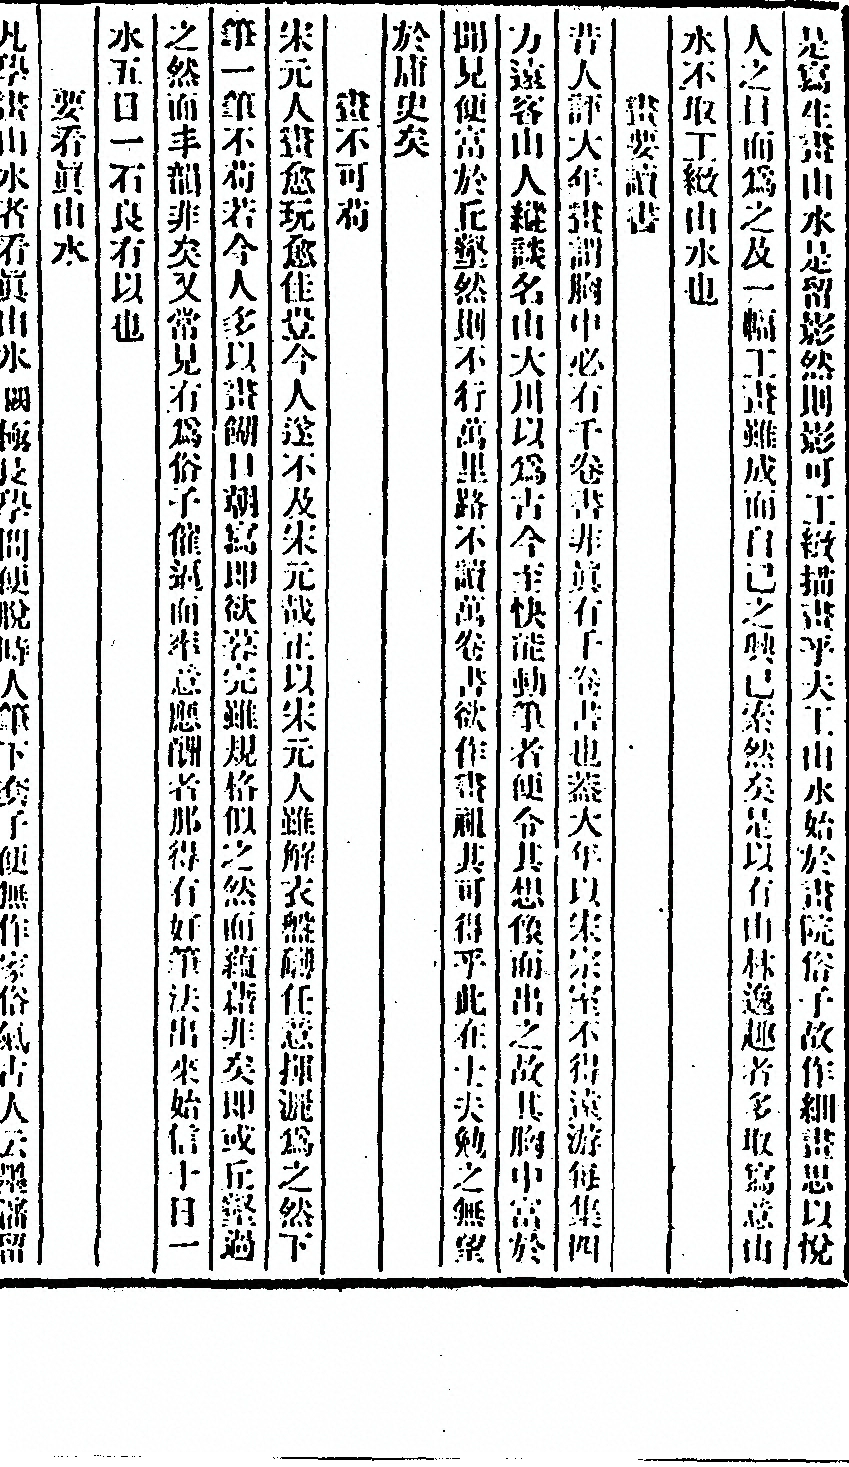 是寫生畫山水是留影然則影可工緻描畫乎夫工山水始於畫院俗子故作細畫思以悅
人之目而為之及一幅工畫雖成而自己之興已索然矣是以有山林逸趣者多取寫意山
水不取工緻山水也
畫要讀書
昔人評大年畫謂胸中必有千卷書非真有千卷書也蓋大年以宋宗室不得遠游每集四
方遠客山人縱談名山大川以為古今至快能動筆者便令其想像而出之故其胸中富於
聞見便富於丘壑然則不行萬里路不讀萬卷書欲作畫祖其可得乎此在士夫勉之無望
於庸史矣
畫不可苟
宋元人畫愈玩愈佳豈今人遂不及宋元哉正以宋元人雖解衣盤礴任意揮灑為之然下
筆一筆不苟若今人多以畫餬口朝寫即欲暮完雖規格似之然而蘊藉非矣即或丘壑過
之然而丰韻非矣又常見有為俗子催逼而率意應酬者那得有好筆法出來始信十日一
水五日一石良有以也
要看真山水
凡學畫山水者看真山水 極長學問便脫時人筆下套子便無作家俗氣古人云墨瀋留